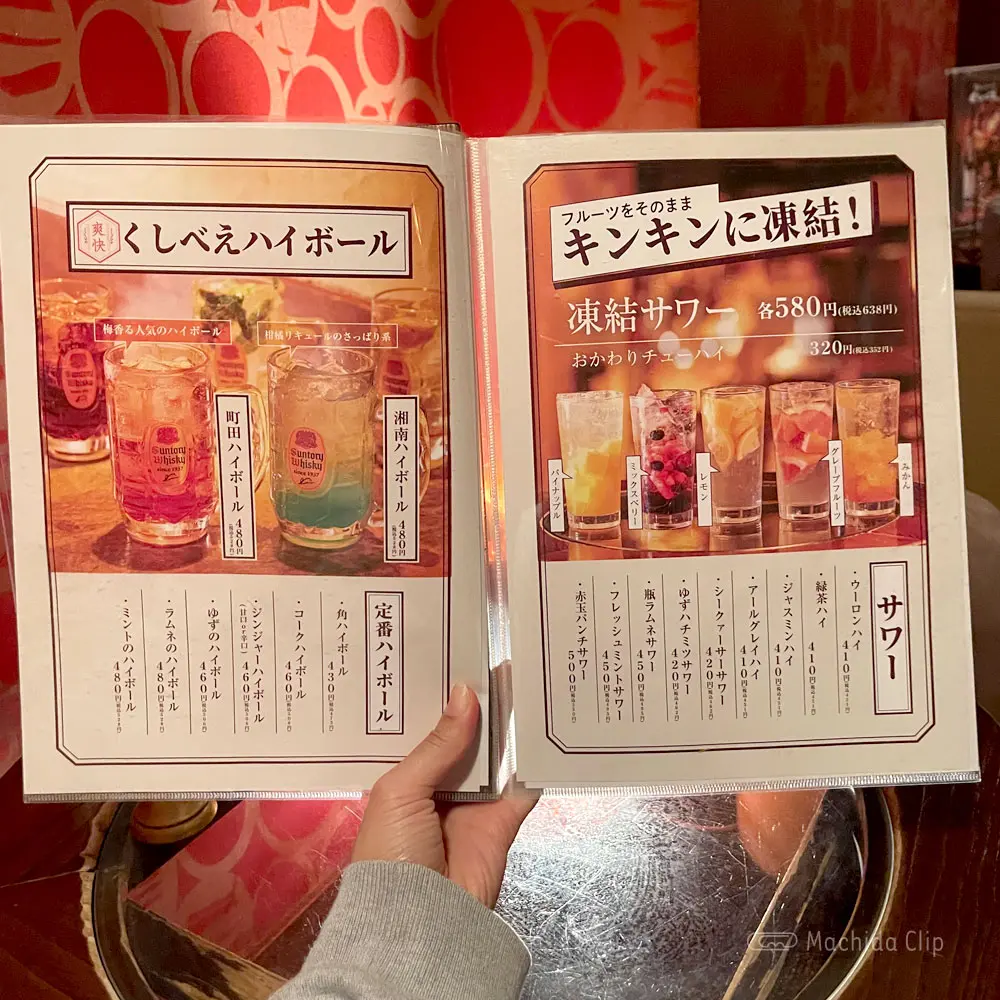 爽快
くしべえハイボール
梅香る人気のハイボール
柑橘リキュールのさっぱり系
町田ハイボール 480円
湘南ハイボール 480円
Suntory
Whisky
since 1937
Suntory
Whisky
since 1937
定番ハイボール
・角ハイボール 430円
・コークハイボール 460円
・ジンジャーハイボール 460円
(甘口or辛口)
・ゆずのハイボール 460円
・ラムネのハイボール 480円
・ミントのハイボール 480円
フルーツをそのまま
キンキンに凍結!
凍結サワー 各580円(税込638円)
おかわりチューハイ 320円(税込352円)
パイナップル
ミックスベリー
レモン
グレープフルーツ
みかん
サワー
・ウーロンハイ 410円
・緑茶ハイ 410円
・ジャスミンハイ 410円
・アールグレイハイ 410円
・シークァーサーサワー 420円
・ゆずハチミツサワー 420円
・瓶ラムネサワー 450円
・フレッシュミントサワー 450円
・赤玉パンチサワー 500円
Machida Clip